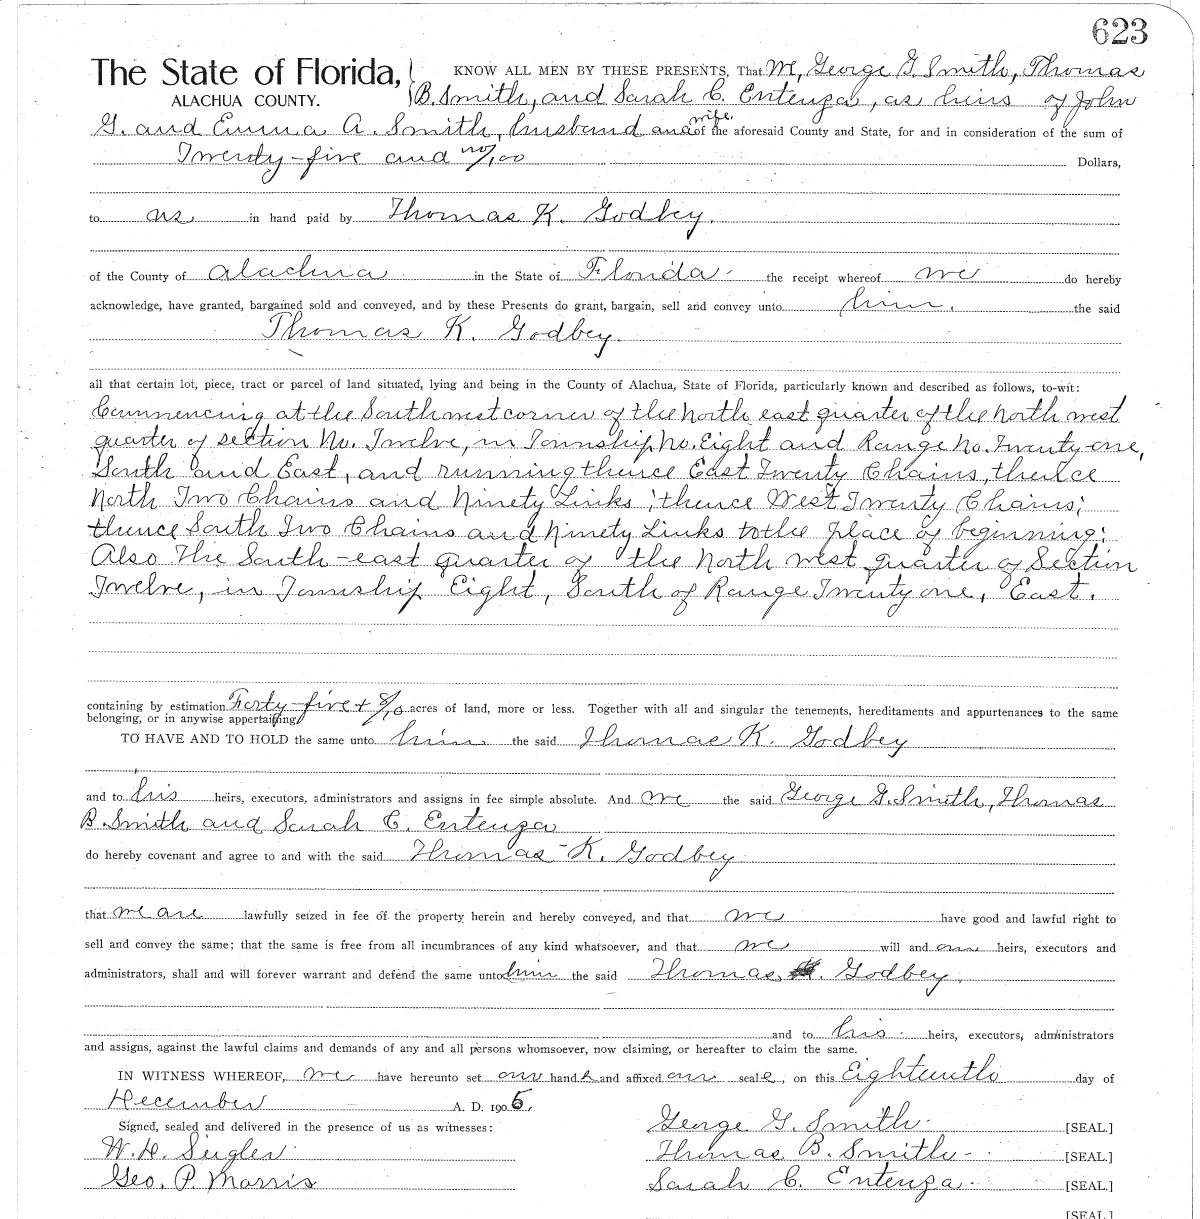 623
The State of Florida, KNOW ALL MEN BY THESE PRESENTS, That We, George G. Smith, Thomas
ALACHUA COUNTY. B. Smith, and Sarah C. Entenza, as heirs of John
G. and Emma A. Smith, husband and wife. of the aforesaid County and State, for and in consideration of the sum of
Twenty-five and no/100 Dollars,
to us in hand paid by Thomas K. Godbey.
of the County of Alachua in the State of Florida. the receipt whereof we do hereby
acknowledge, have granted, bargained sold and conveyed, and by these Presents do grant, bargain, sell and convey unto him. the said
Thomas K. Godbey.
all that certain lot, piece, tract or parcel of land situated, lying and being in the County of Alachua, State of Florida, particularly known and described as follows, to-wit:
Commencing at the Southwest corner of the North east quarter of the North west
quarter of section No. Twelve, in Township No. Eight and Range No. Twenty-one,
South and East, and running thence East Twenty Chains, thence
North Two Chains and Ninety Links; thence West Twenty Chains;
thence South Two Chains and Ninety Links to the place of beginning:
Also The South-east quarter of the North west quarter of Section
Twelve, in Township Eight, South of Range Twenty one, East.
containing by estimation Forty-five + 8/10 acres of land, more or less. Together with all and singular the tenements, hereditaments and appurtenances to the same
belonging, or in anywise appertaining
TO HAVE AND TO HOLD the same unto him the said Thomas K. Godbey
and to his heirs, executors, administrators and assigns in fee simple absolute. And we the said George G. Smith, Thomas
B. Smith and Sarah C. Entenza
do hereby covenant and agree to and with the said Thomas K. Godbey
that we are lawfully seized in fee of the property herein and hereby conveyed, and that we have good and lawful right to
sell and convey the same; that the same is free from all incumbrances of any kind whatsoever, and that we will and our heirs, executors and
administrators, shall and will forever warrant and defend the same unto him the said Thomas K. Godbey.
and to his heirs, executors, administrators
and assigns, against the lawful claims and demands of any and all persons whomsoever, now claiming, or hereafter to claim the same.
IN WITNESS WHEREOF, we have hereunto set our hands and affixed our seals, on this Eighteenth day of
December A. D. 1905,
Signed, sealed and delivered in the presence of us as witnesses: George G. Smith [SEAL.]
W. H. Seigler Thomas B. Smith [SEAL.]
Geo. P. Morris Sarah C. Entenza [SEAL.]
[SEAL.]